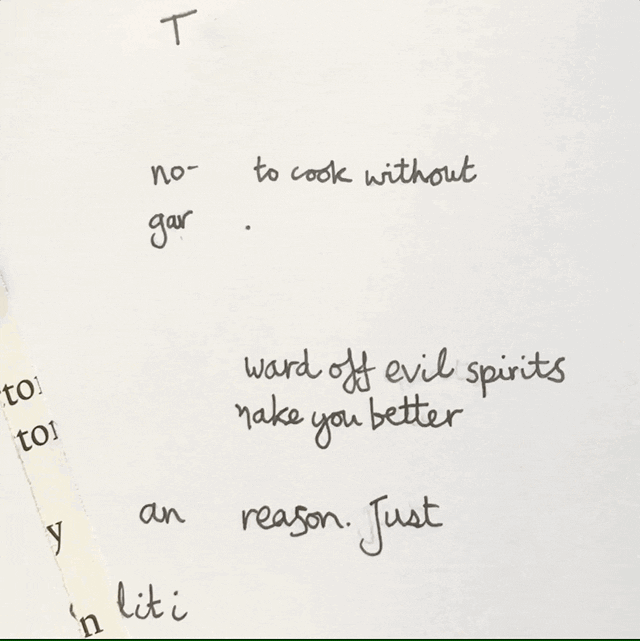 T
no- to cook without
gar .
ward off evil spirits
make you better
an reason. Just
liti
to
to
y
n